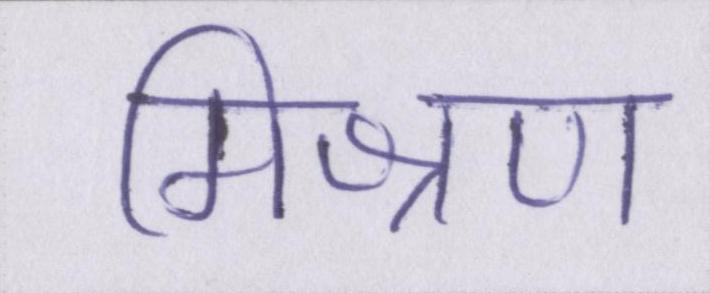 मिश्रण